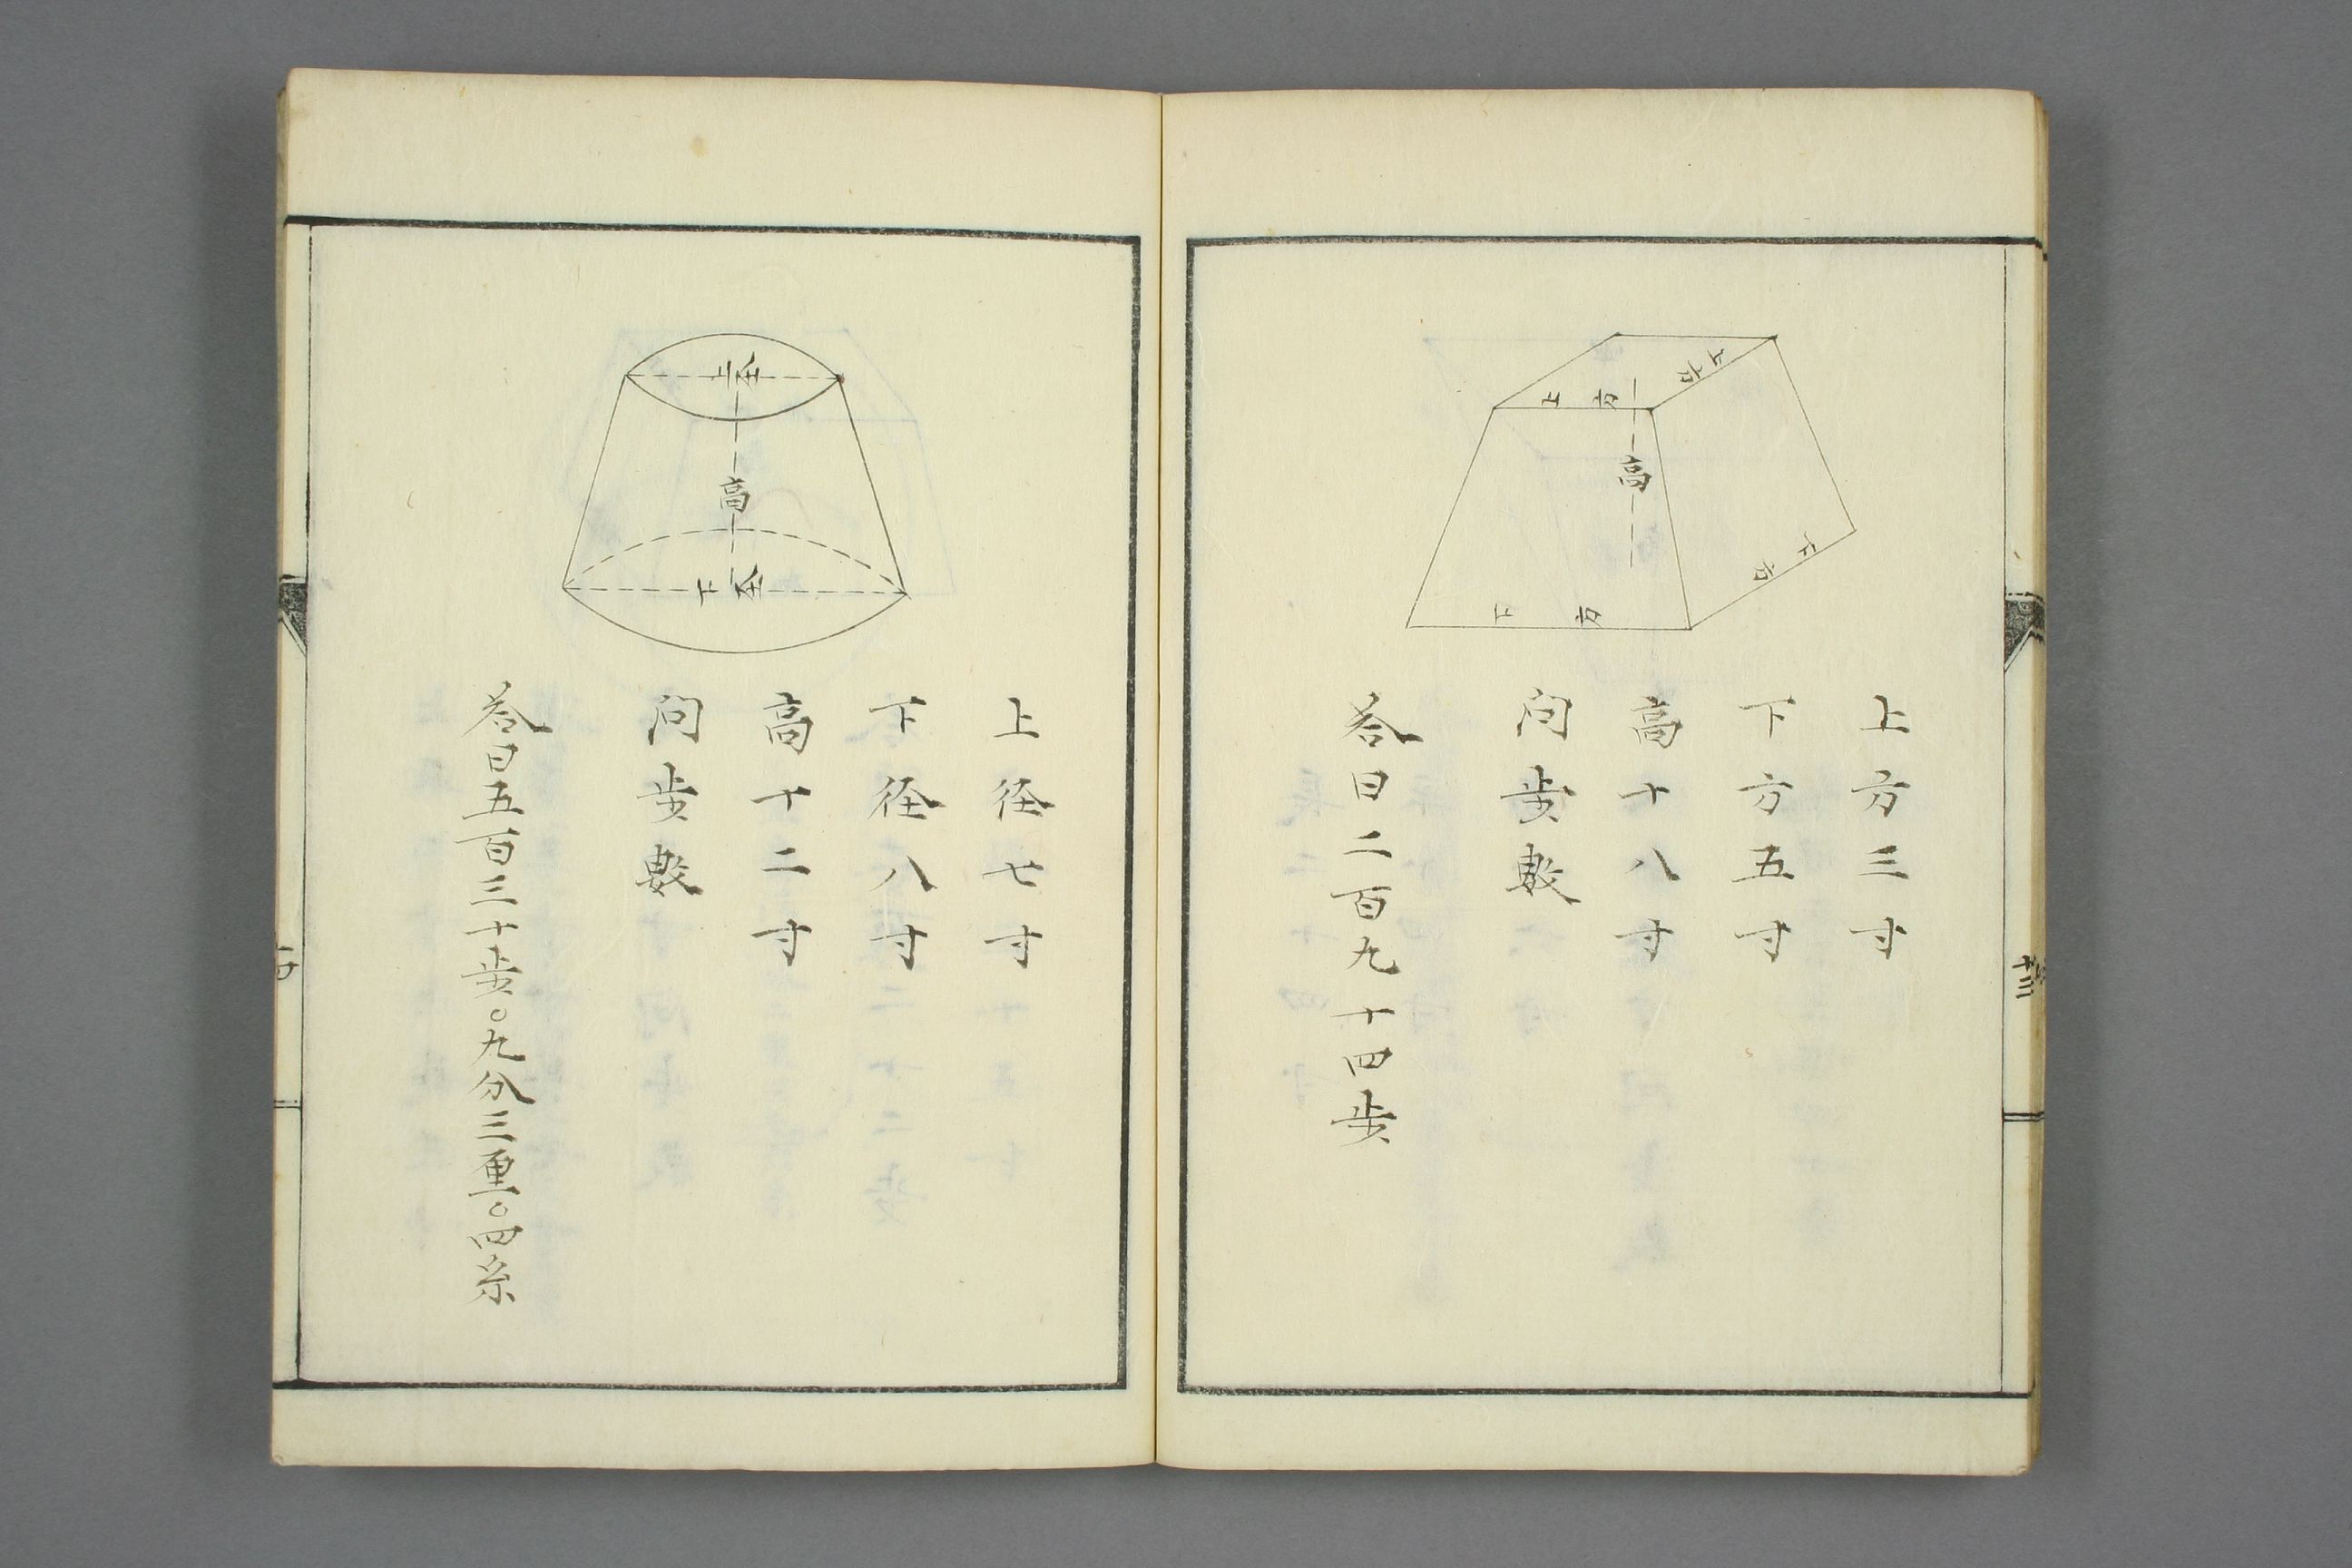 上方
上方
高
下方
下方
上方三寸
下方五寸
高十八寸
問歩数
答曰二百九十四歩
上径
高
下径
上径七寸
下径八寸
高十二寸
問歩数
答曰五百三十歩〇九分三厘〇四糸